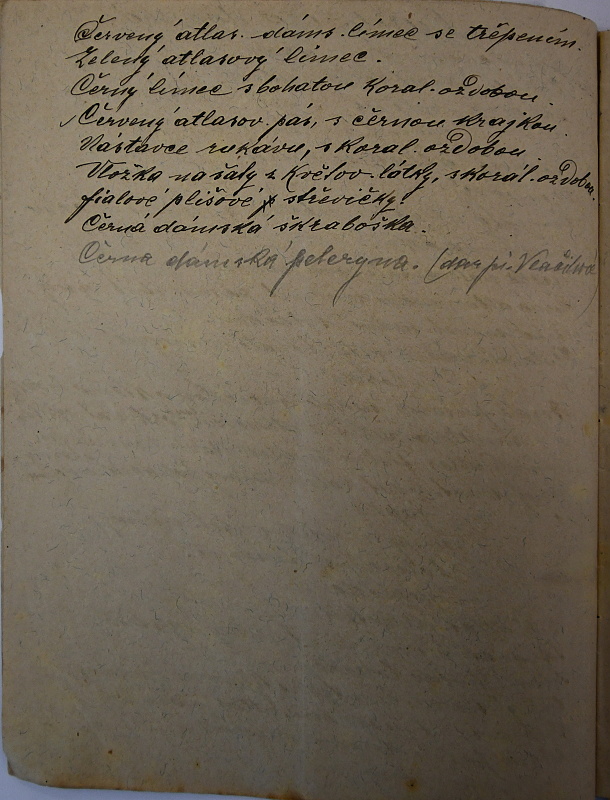 Červený atlas. dáms. límec se třepením.
Zelený atlasový límec.
Černý límec s bohatou koral. ozdobou.
Červený atlasov. pás, s černou krajkou.
Nástavce rukávů, s koral. ozdobou
Vložka na šaty z květov. látky, s korál. ozdobou.
fialové plišové střevíčky.
Černá dámská škraboška.
Černá dámská peleryna. (dar pí.